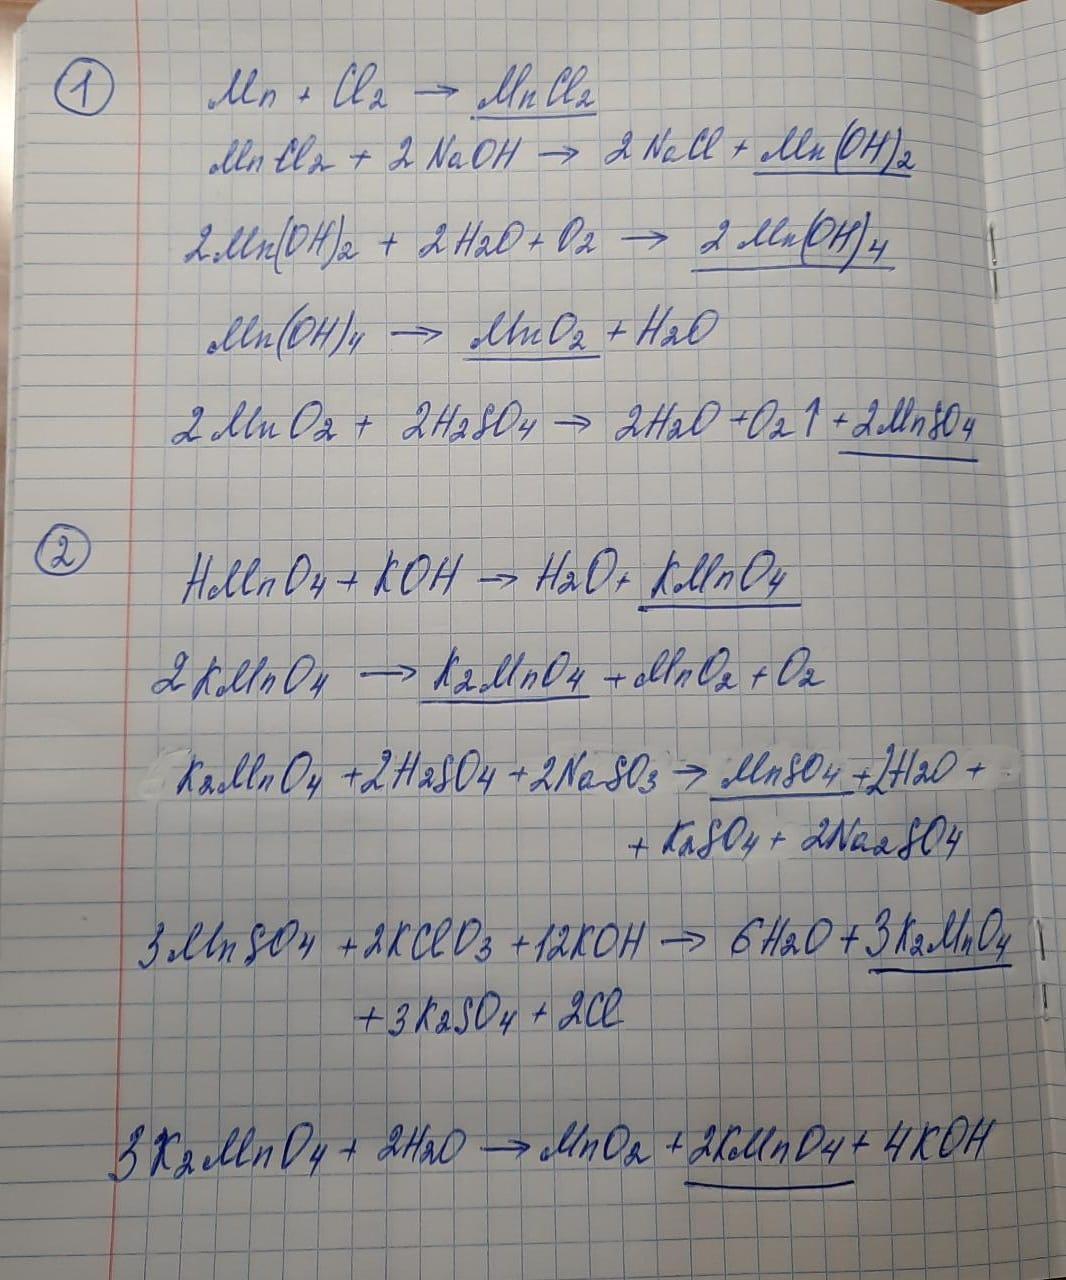 ① Mn + Cl₂ → MnCl₂
MnCl₂ + 2NaOH → 2NaCl + Mn(OH)₂
2Mn(OH)₂ + 2H₂O + O₂ → 2Mn(OH)₄
Mn(OH)₄ → MnO₂ + H₂O
2MnO₂ + 2H₂SO₄ → 2H₂O + O₂↑ + 2MnSO₄
② HMnO₄ + KOH → H₂O + KMnO₄
2KMnO₄ → K₂MnO₄ + MnO₂ + O₂
K₂MnO₄ + 2H₂SO₄ + 2NaSO₃ → MnSO₄ + 2H₂O +
+ K₂SO₄ + 2Na₂SO₄
3MnSO₄ + 2KClO₃ + 12KOH → 6H₂O + 3K₂MnO₄
+ 3K₂SO₄ + 2Cl
3K₂MnO₄ + 2H₂O → MnO₂ + 2KMnO₄ + 4KOH